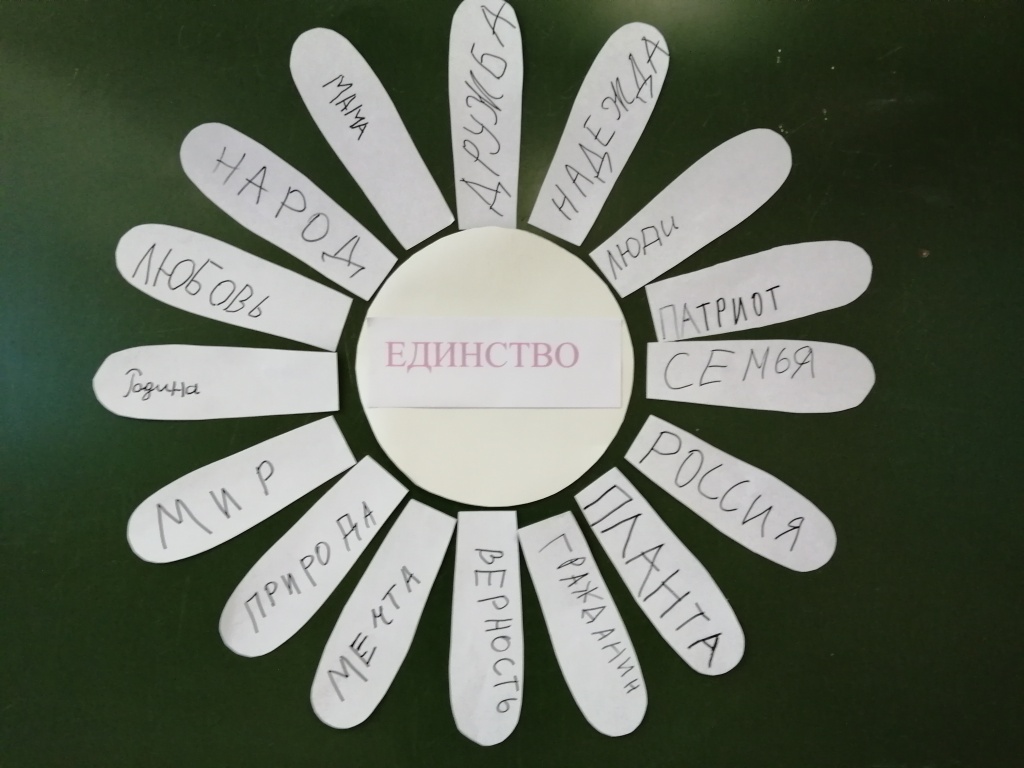 ЕДИНСТВО
ДРУЖБА
НАДЕЖДА
ЛЮДИ
ПАТРИОТ
СЕМЬЯ
РОССИЯ
ПЛАНТА
ГРАЖДАНИН
ВЕРНОСТЬ
МЕЧТА
ПРИРОДА
МИР
Родина
ЛЮБОВЬ
НАРОД
МАМА